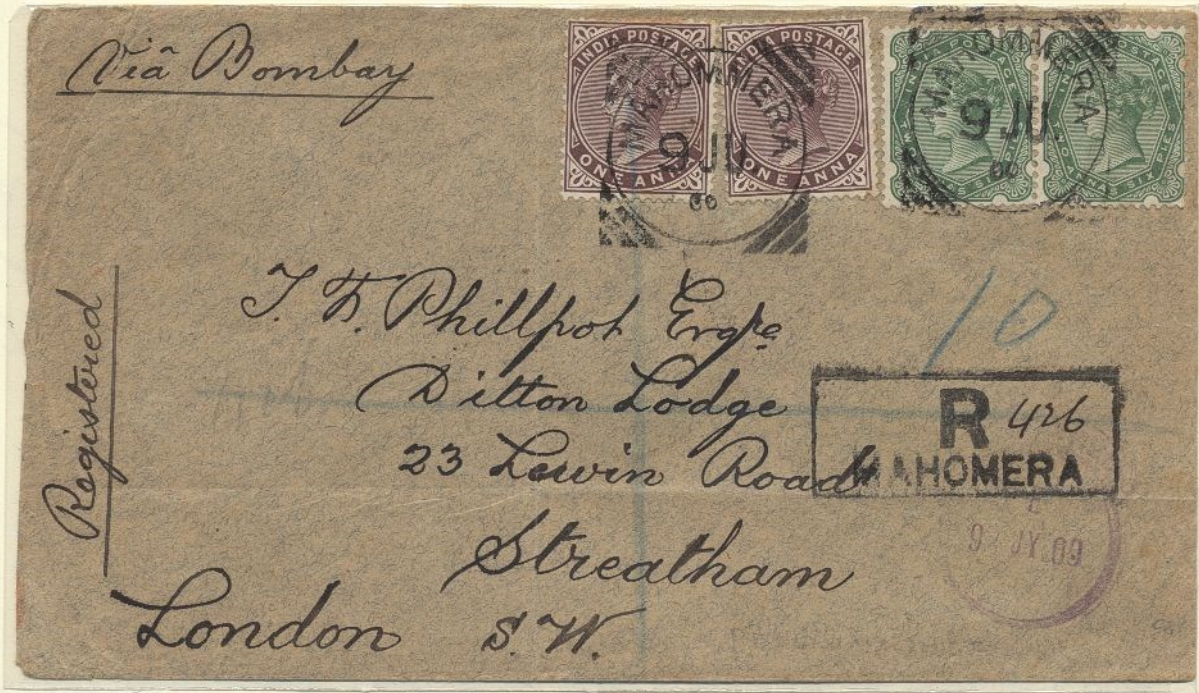 Viâ Bombay
INDIA POSTAGE
ONE ANNA
INDIA POSTAGE
ONE ANNA
POSTAGE
SIX PIES
MAHOMMERA
9 JU
MAHOMMERA
9 JU.
Registered
10
Phillpot Esqre
Ditton Lodge
23 Lewin Road
Streatham
London S.W.
R 426
MAHOMERA
9 JY.09